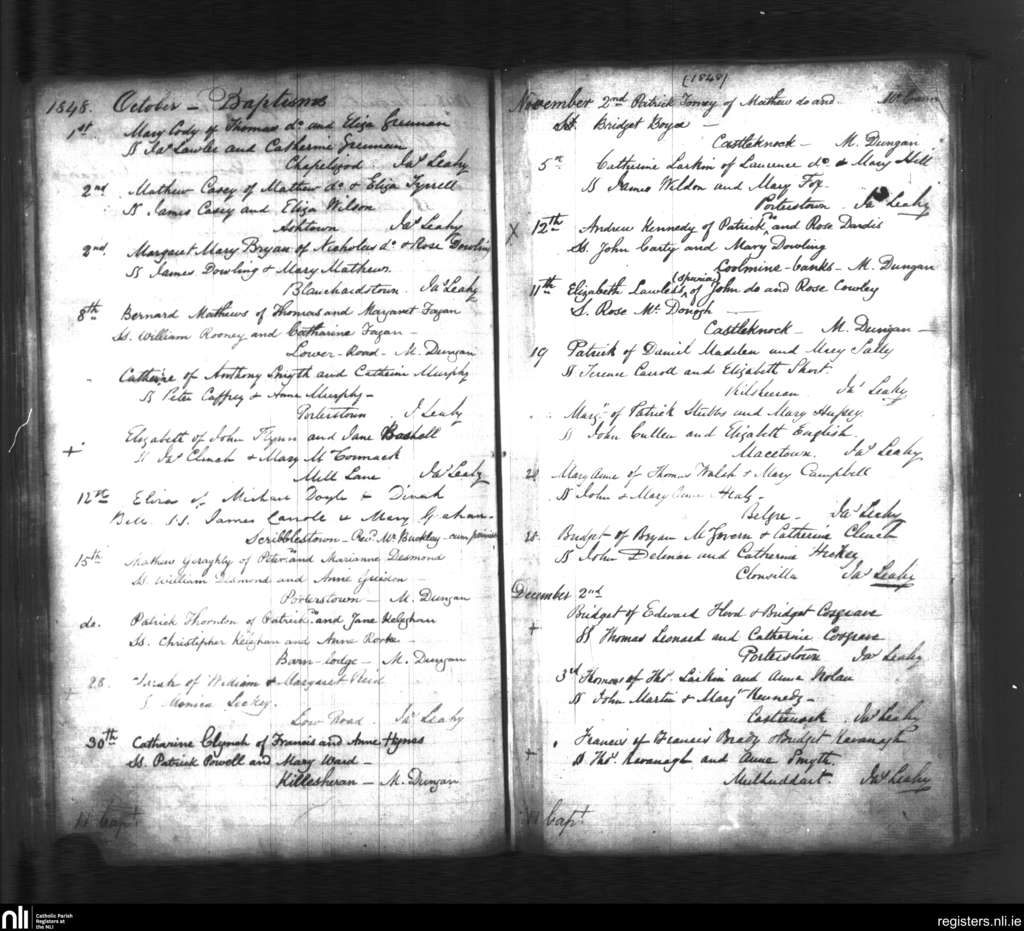 1848. October - Baptisms
1st Mary Cody of Thomas do. and Eliza Grennan
SS Jas Lawler and Catherine Grennan
Chapelizod. Jas Leahy
2nd Mathew Casey of Mathew do. & Eliza Tyrrell
SS James Casey and Eliza Wilson
Ashtown Jas Leahy
2nd. Margaret Mary Bryan of Nicholas do & Rose Dowling
SS James Dowling & Mary Mathews
Blanchardstown. Jas Leahy
8th Bernard Mathews of Thomas and Margaret Fagan
SS. William Rooney and Catharine Fagan -
Lower-Road - M. Dungan
Catherine of Anthony Smyth and Catherin Murphy
SS Peter Caffrey & Anne Murphy -
Porterstown J. Leahy
+ Elizabeth of John Flynn and Jane
SS Jas Clinch & Mary McCormack
Mill Lane Jas Leahy
12th Eliza of Michael Doyle & Dinah
Bell S.S. James Carrole & Mary Graham -
Scribblestown - Revd. Mr Buckley -
15th Mathew Geraghty of Peter and Marianne Desmond
SS. William Desmond and Anne
Porterstown - M. Dungan
do. Patrick Thornton of Patrick and Jane Keighan
SS. Christopher Keighan and Anne Rorke -
Barn-lodge - M. Dungan
28. of William & Margaret
Monica
Low Road. Jas Leahy
30th Catharine Clynch of Francis and Anne Hynes
SS. Patrick Powell and Mary Ward -
Killesheran - M. Dungan
11 Bapt
(1848)
November 2nd Patrick Torney of Mathew do and
SS. Bridget Boyce -
Castleknock - M. Dungan
5th Catherine Larkin of Laurence do & Mary Hill
SS James Weldon and Mary Fox -
Porterstown. Jas Leahy
X 12th Andrew Kennedy of Patrick and Rose Dardis
SS. John Carty and Mary Dowling
Coolmine-banks - M. Dungan
(Spurius)
11th Elizabeth Lawless of John do and Rose Cowley
S. Rose Mc Donogh
Castleknock - M. Dungan -
19 Patrick of Daniel Madden and Mary Sally
SS Terence Carroll and Elizabeth Short.
Kilsheran. Jas Leahy
Margt of Patrick Stubbs and Mary Hussey
SS John Cullen and Elizabeth English.
Macetown. Jas Leahy
Mary Anne of Thomas Walsh & Mary Campbell
SS John & Mary Anne Healy -
Jas Leahy
Bridget of Bryan McGovern & Catherine Clinch
SS John and Catherine Hickey
Clonsilla Jas Leahy
December 2nd
+ Bridget of Edward Flood & Bridget Cosgrave
SS Thomas Leonard and Catherine Cosgrave
Porterstown Jas Leahy
3rd Thomas of Thos. Larkin and Anne Nolan
SS John Martin & Margt Kennedy -
Castlenock. Jas Leahy
+ Francis of Francis Brady & Bridget Kavanagh
SS Thos. Kavanagh and Anne Smyth.
Mulhuddart. Jas Leahy
11 Bapt
nli Catholic Parish
Registers at
the NLI
registers.nli.ie